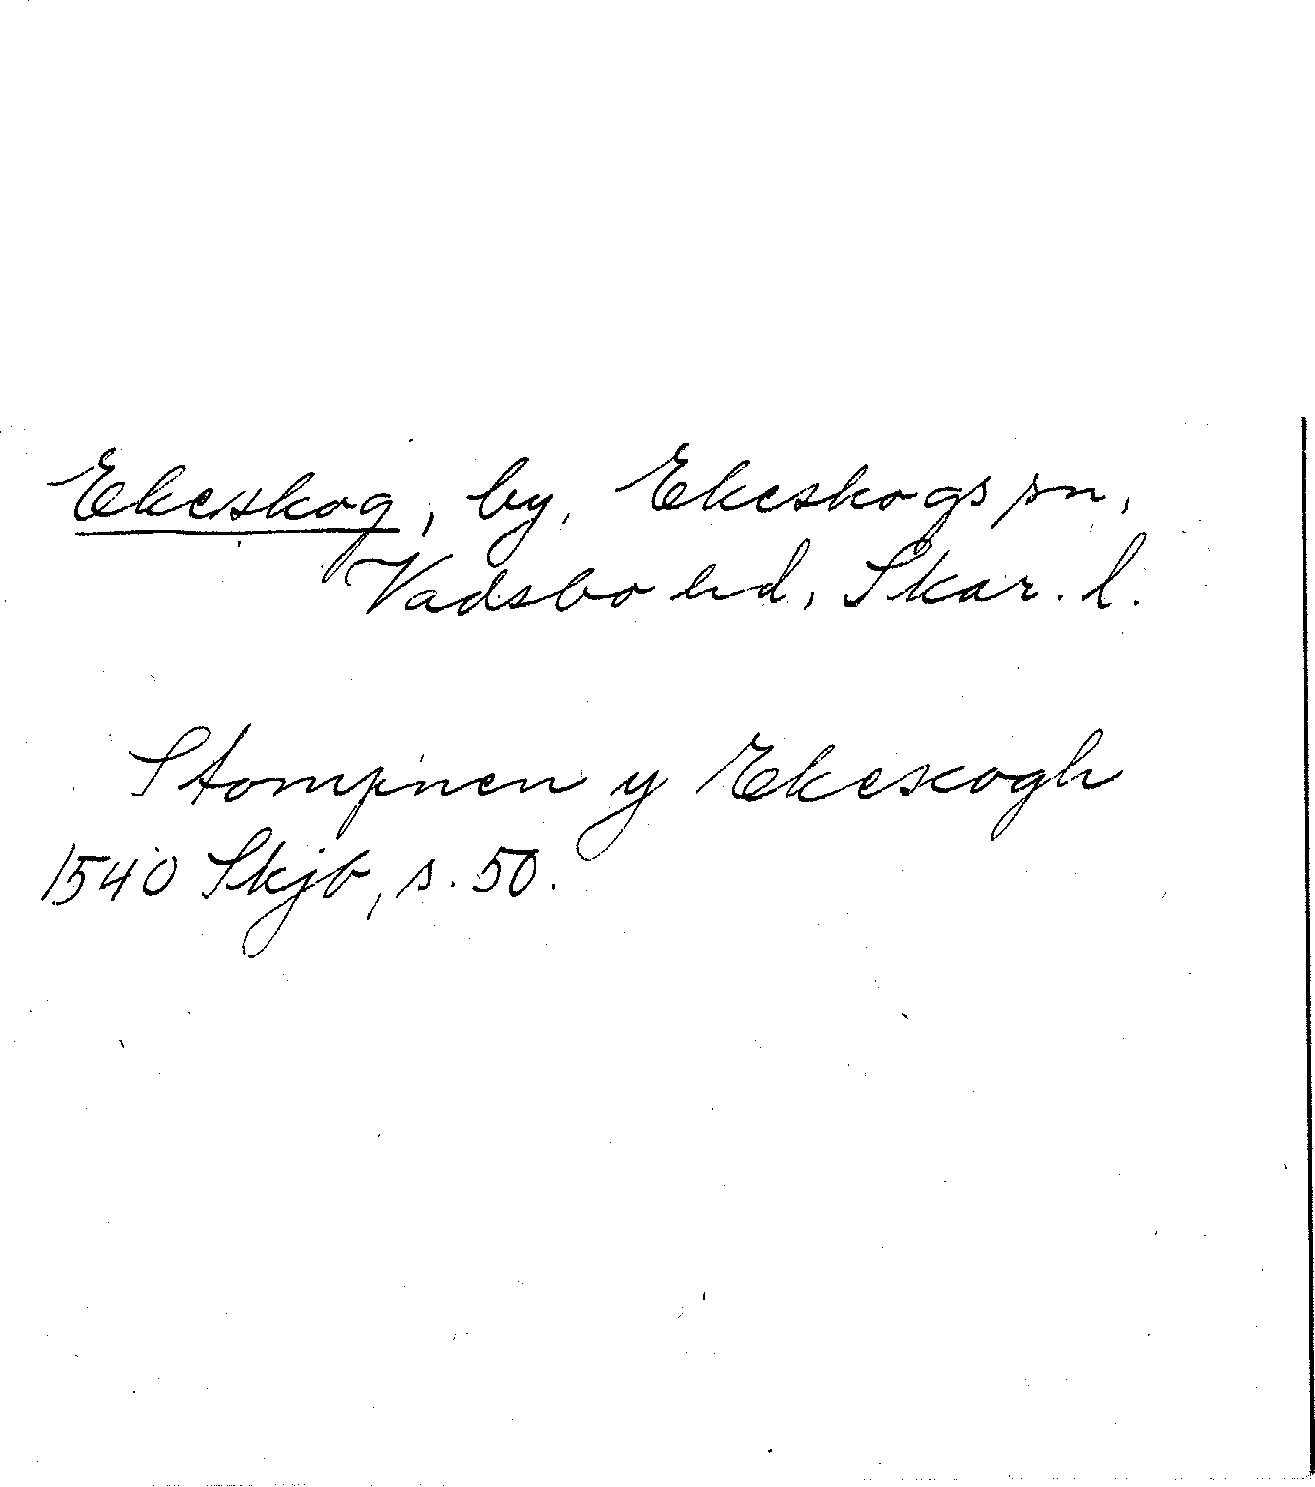 Ekeskog, by, Ekeskogs sn,
Vadsbo hd, Skar. l.
Stompnen y Ekeskogh
1540 Skjb, s. 50.